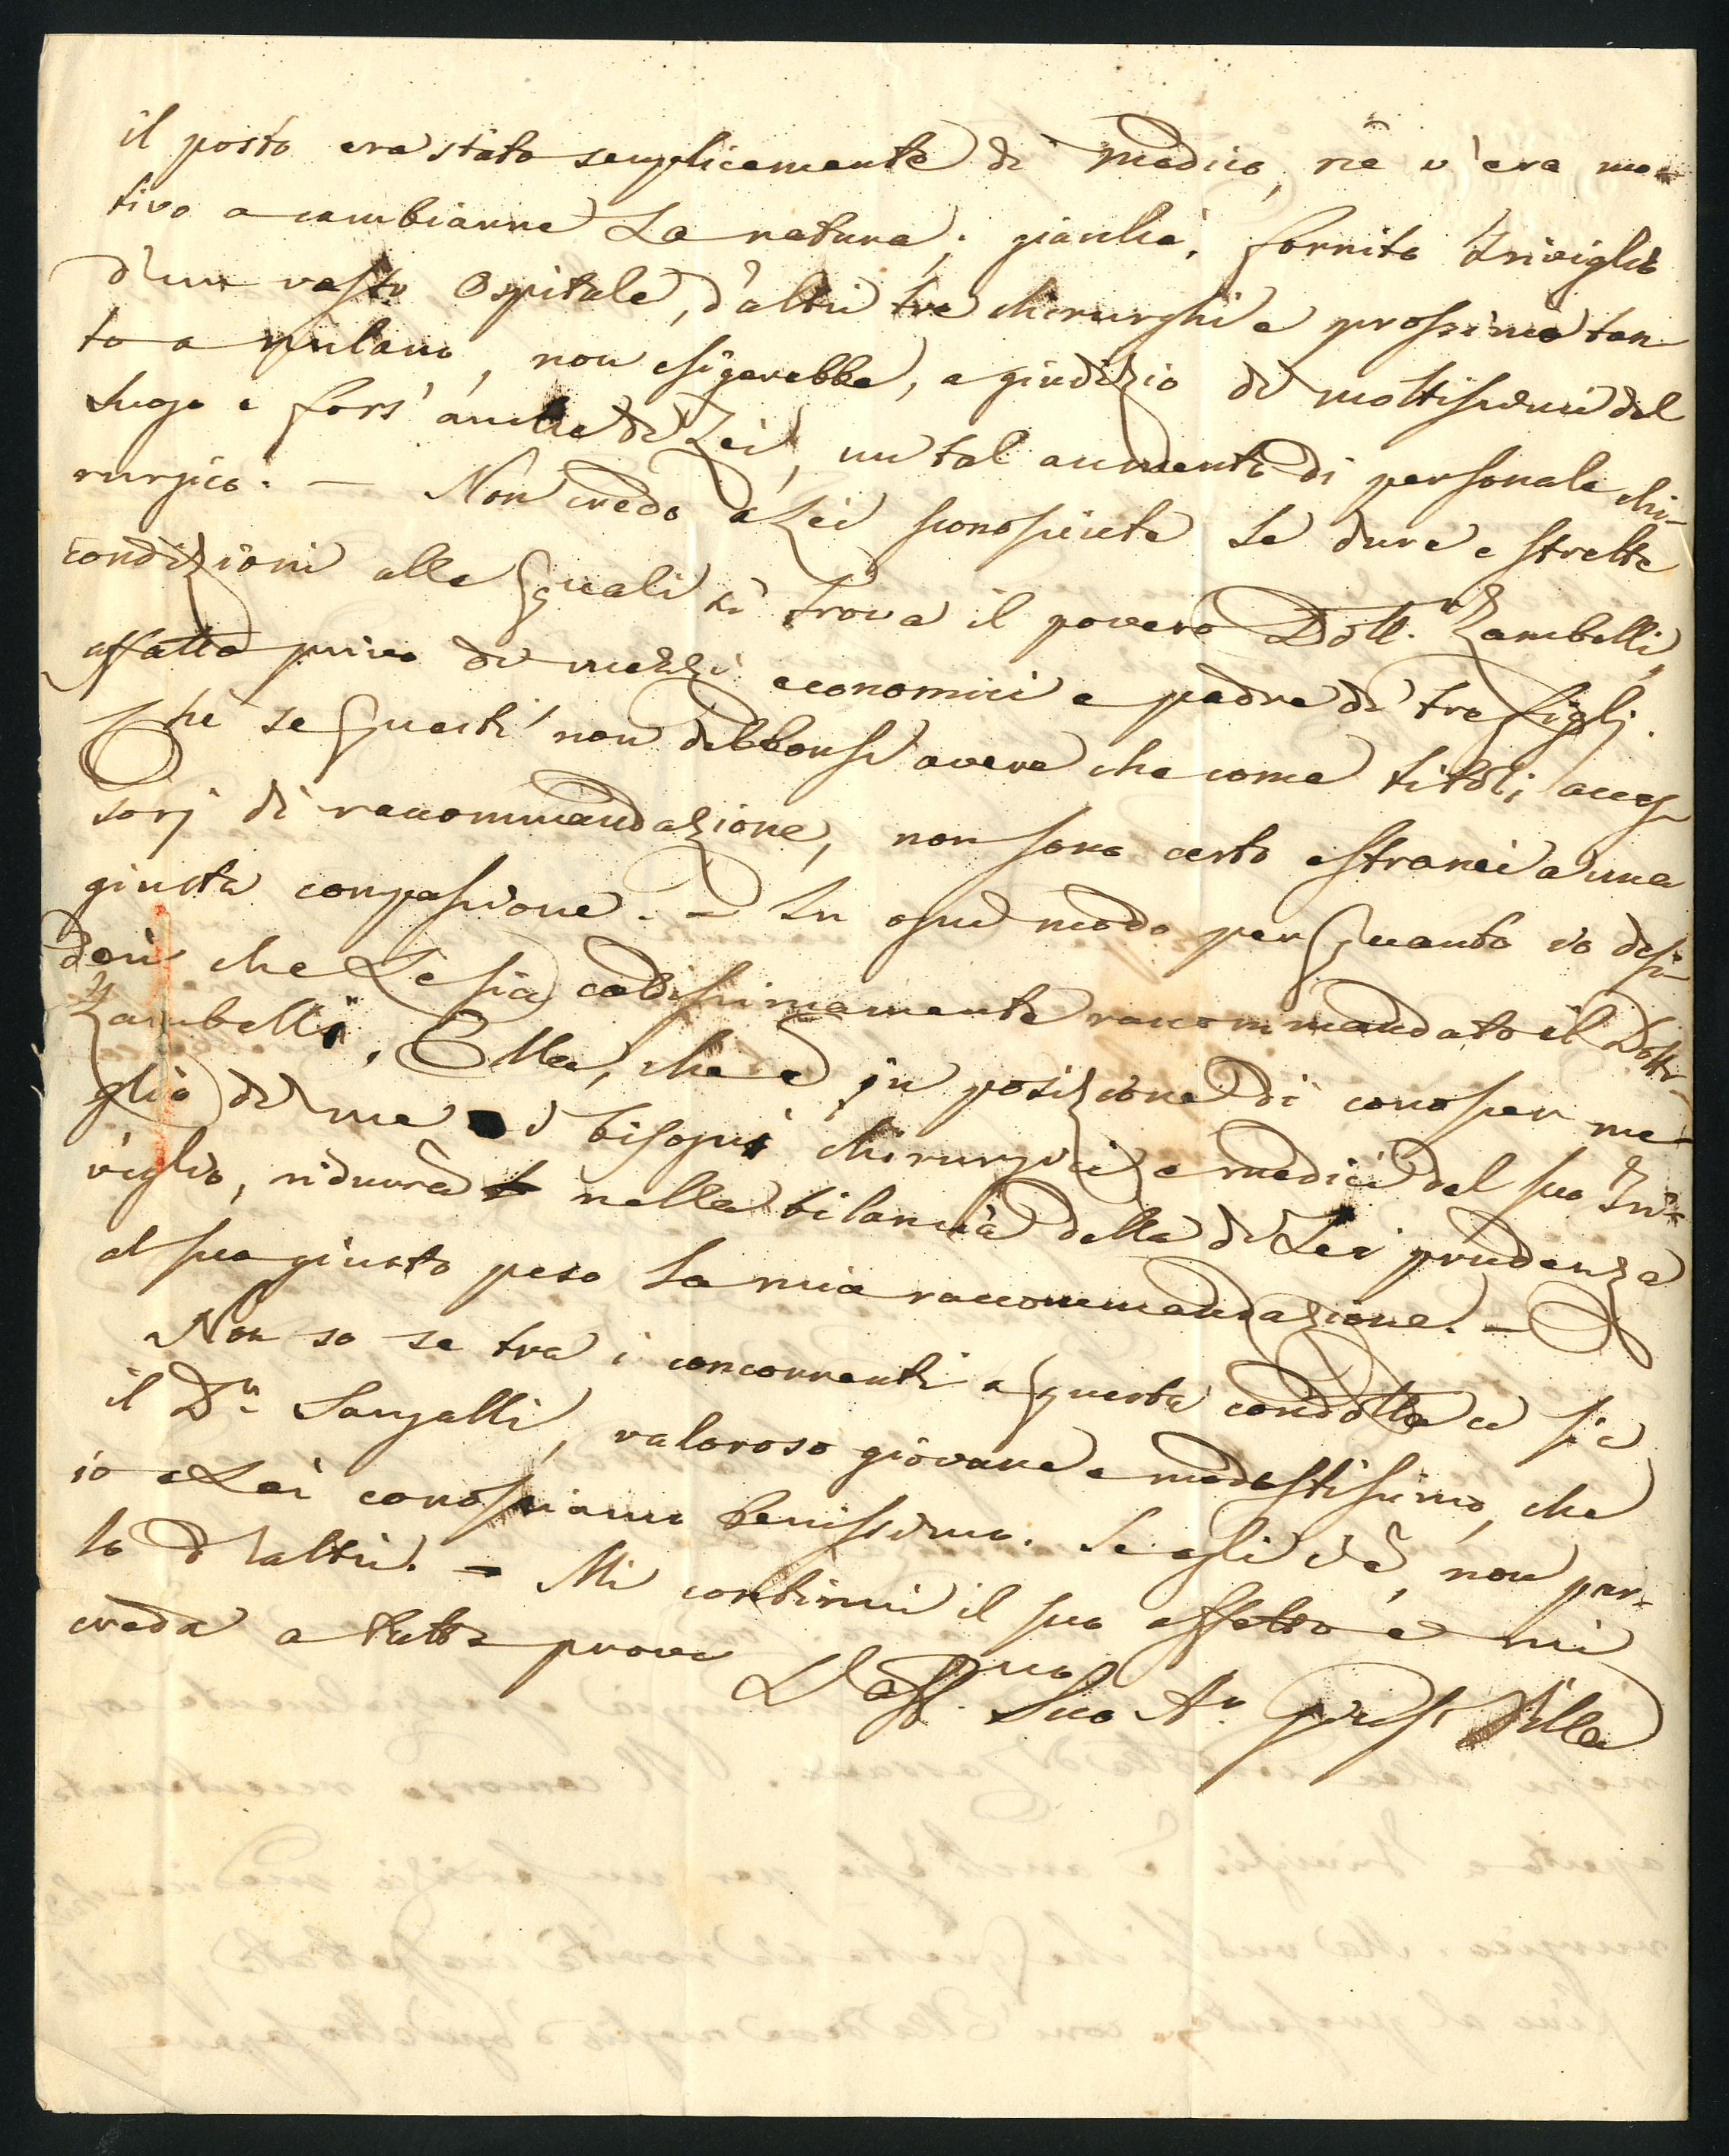 il posto era stato semplicemente di Medico, nè v'era mo-
tivo a cambiarne La natura; giacchè, fornito Triviglio
d'un vasto Ospitale, d'altri tre chirurghi e prossimo tan
to a Milano, non esigerebbe, a giudizio di moltissimi del
luogo e fors' anche di Lei, un tal aumento di personale chi-
rurgico. — Non credo a Lei sconosciute le dure e strette
condizioni alle quali si trova il povero Dott.r Zambelli,
affatto privo di mezzi economici e padre di tre figli.
Chè se questi non debbonsi avere che come titoli acces
sorj di raccommandazione, non sono certo estranei a una
giusta compassione. — In ogni modo per quanto io desi-
deri che Le sia caldissimamente raccommandato il Dottr
Zambelli, Ella, che è in posizione di conoscer me-
glio di me i bisogni chirurgici e medici del suo Tri-
viglio, ridurrà nella bilancia della di Lei prudenza
al suo giusto peso la mia raccommandazione. —
Non so se tra i concorrenti a questa condotta ci sia
il D.r Sangalli, valoroso giovane e modestissimo, che
io e Lei conosciamo benissimo. Se egli v'è, non par-
lo d'altri. — Mi continui il suo affetto e mi
creda a tutta prova
L'aff.mo Suo A.o Villa